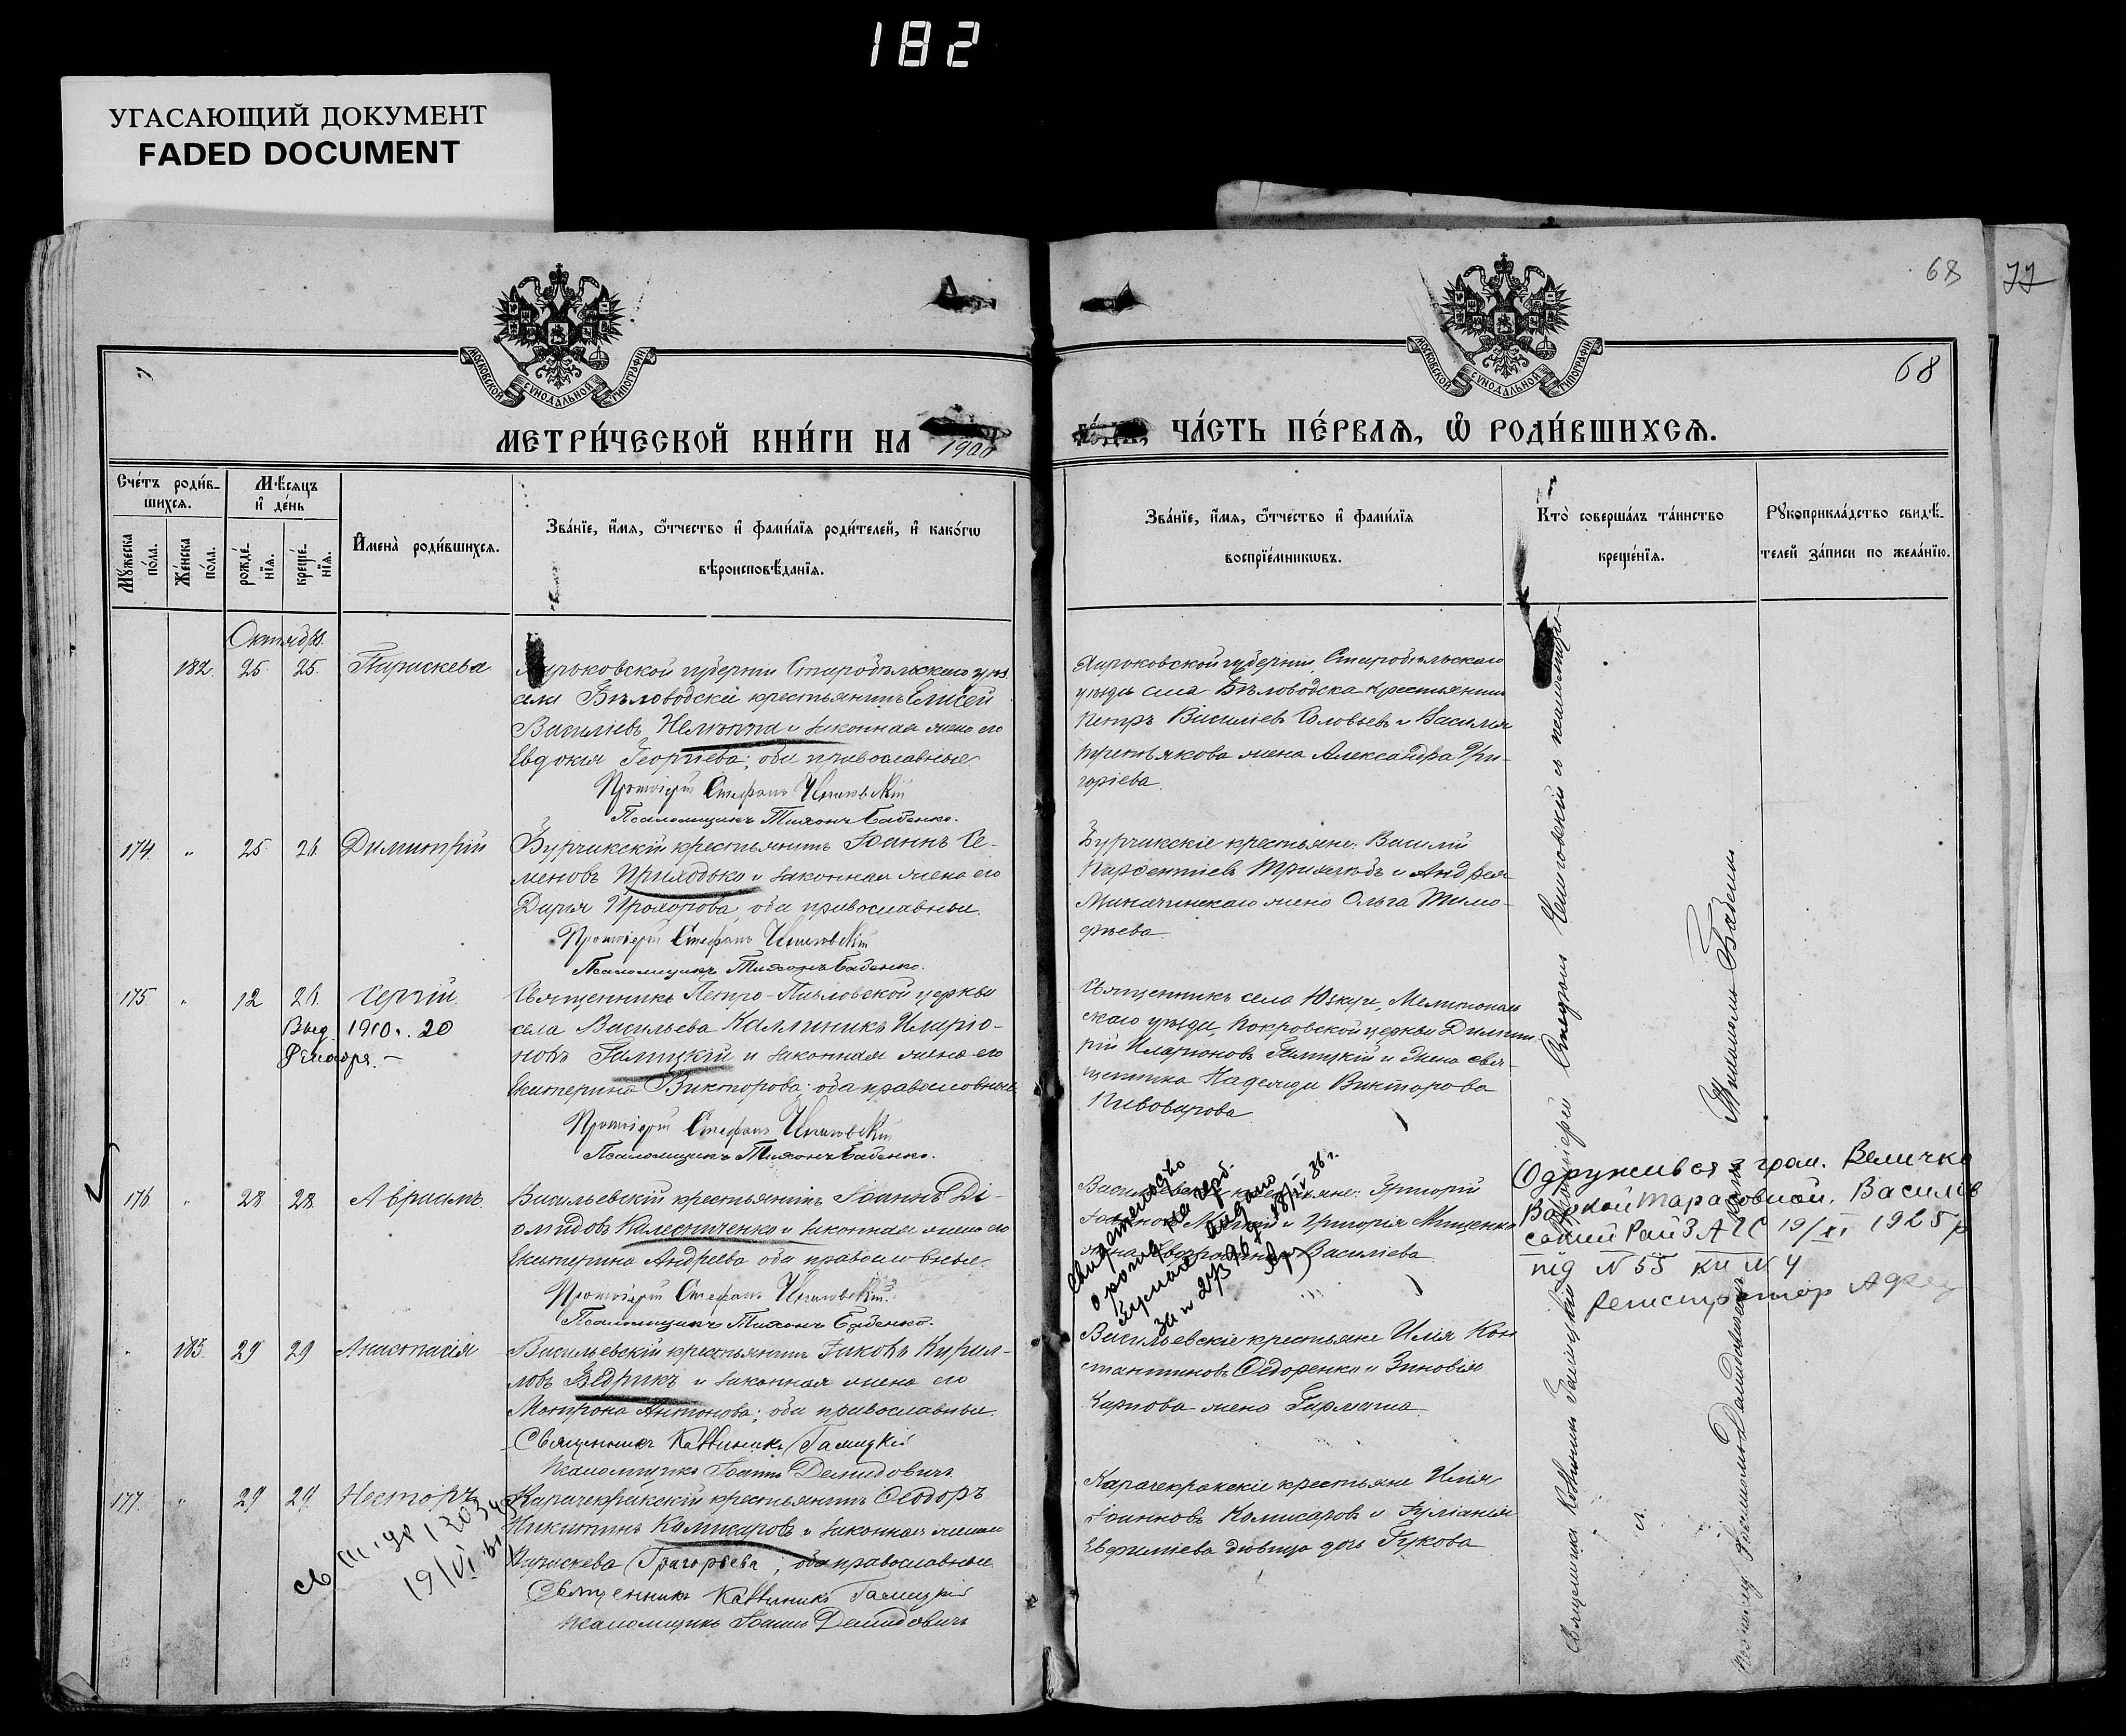 182
УГАСАЮЩИЙ ДОКУМЕНТ
FADED DOCUMENT
68
77
68
МОСКОВСКОЙ СУНОДАЛЬНОЙ ТИПОГРАФІИ
МОСКОВСКОЙ СУНОДАЛЬНОЙ ТИПОГРАФІИ
МЕТРИ́ЧЕСКОЙ КНИ́ГИ НА 1900
ЧА́СТЬ ПЕ́РВАЯ, Ѡ РОДИ́ВШИХСЯ.
Сче́тъ роди́в-
шихся.
Мѣ́сяцъ
и де́нь
Мꙋжеска по́ла.
Же́нска по́ла.
рожде́-
нїя.
креще́-
нїя.
Имена̀ роди́вшихся.
Зва́нїе, и́мя, ѻ҆́тчество и фами́лїя роди́телей, и како́гѡ
вѣроисповѣ́данїя.
Зва́нїе, и́мя, ѻ҆́тчество и фами́лїя
воспрїе́мникѡвъ.
Кто̀ соверша́лъ та́инство
креще́нїя.
Рꙋкоприкла́дство свидѣ́-
телей за́писи по жела́нїю.
Октябрь.
182. 25. 25. Параскева
Харьковской губерніи Старобѣльскаго уѣз.
села Бѣловодска крестьянинъ Елисей
Василіевъ Нелюпа и законная жена его
Евдокія Георгіева; оба православные.
Протоіерей Стефанъ
Псаломщикъ Тихонъ Бабенко.
Харьковской губерніи, Старобѣльскаго
уѣзда села Бѣловодска крестьянинъ
Петръ Василіевъ Соловьевъ и Василія
Третьякова жена Александра Гри-
горіева.
174. " 25. 26. Димитрій
Бурчакскій крестьянинъ Іоаннъ Се-
меновъ Приходько и законная жена его
Дарья Прохорова, оба православные.
Протоіерей Стефанъ
Псаломщикъ Тихонъ Бабенко.
Бурчакскіе крестьяне: Василій
Парфентіевъ и Андрея
жена Ольга Тимо-
феева.
175 " 12 26. Сергій.
Выд. 1910 г. 20
Священникъ Петро-Павловской церкви
села Васильевки Каллиникъ Иларіо-
новъ Галицкій и законная жена его
Екатерина Викторова; оба православные
Протоіерей Стефанъ
Псаломщикъ Тихонъ Бабенко.
Священникъ села Юзкуи, Мелитополь
скаго уѣзда, Покровской церкви Димит
рій Иларіоновъ Галицкій и жена свя-
щенника Надежда Викторова
Пивоварова
176. " 28 28. Авраамъ.
Васильевскій крестьянинъ Іоаннъ Ді-
омидовъ Калесниченко и законная жена его
Екатерина Андреева оба православные.
Протоіерей Стефанъ
Псаломщикъ Тихонъ Бабенко.
Васильевскіе крестьяне: Григорій
и Григорія Мищенко
жена Василіева.
Свидетельство
о рожд. на
выдано
18/IV 36 г.
Одружився з гром. Величко
Варкой Тарасовной. Василів
ський Рай ЗАГС 19/XI 1925 р
під № 55 кн № 4
Регистратор
" 183. 29 29 Анастасія
Васильевскій крестьянинъ Іаковъ Кирил-
ловъ Ведрикъ и законная жена его
Матрона Антонова; оба православные.
Священникъ Каллиникъ Галицкій
Псаломщикъ Іоаннъ Демидовичъ
Васильевскіе крестьяне Илія Кон
стантиновъ Федоренко и Зиновія
Карпова жена
177. " 29 29. Несторъ
19/VI
Карачекракскій крестьянинъ Феодоръ
Никитинъ Комисаровъ и законная жена
Параскева Григорьева; оба православные
Священникъ Каллиникъ Галицкій
Псаломщикъ Іоаннъ Демидовичъ
Карачекракскіе крестьяне Илія
Іоанновъ Комисаровъ и Іуліанія
Евфиміева дѣвица дочь Гукова
Протоіерей Стефанъ
Псаломщикъ Тихонъ Бабенко
Священникъ Каллиникъ Галицкій
и
Псаломщикъ Іоаннъ Демидовичъ